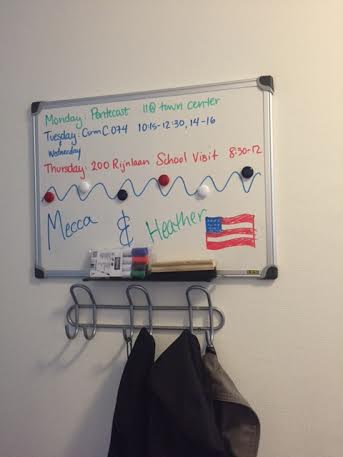 Monday: Pentecost 11@ town center
Tuesday: Comm C074 10:15-12:30, 14-16
& Wednesday
Thursday: 200 Rijnlaan School Visit 8:30-12
Mecca & Heather